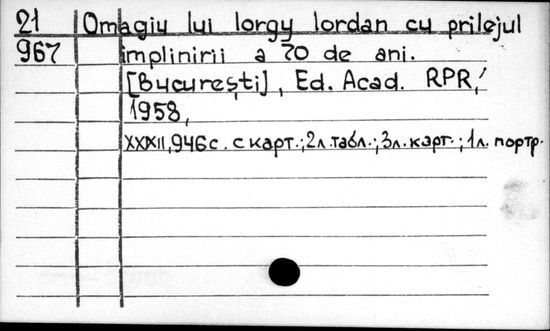 21 Omagiu lui Iorgu Iordan cu prilejul
967 împlinirii a 70 de ani.
[Bucureşti], Ed. Acad. RPR,
1958,
XXXII,946с. с карт.;2л.табл.;3л.карт.;1л.портр.